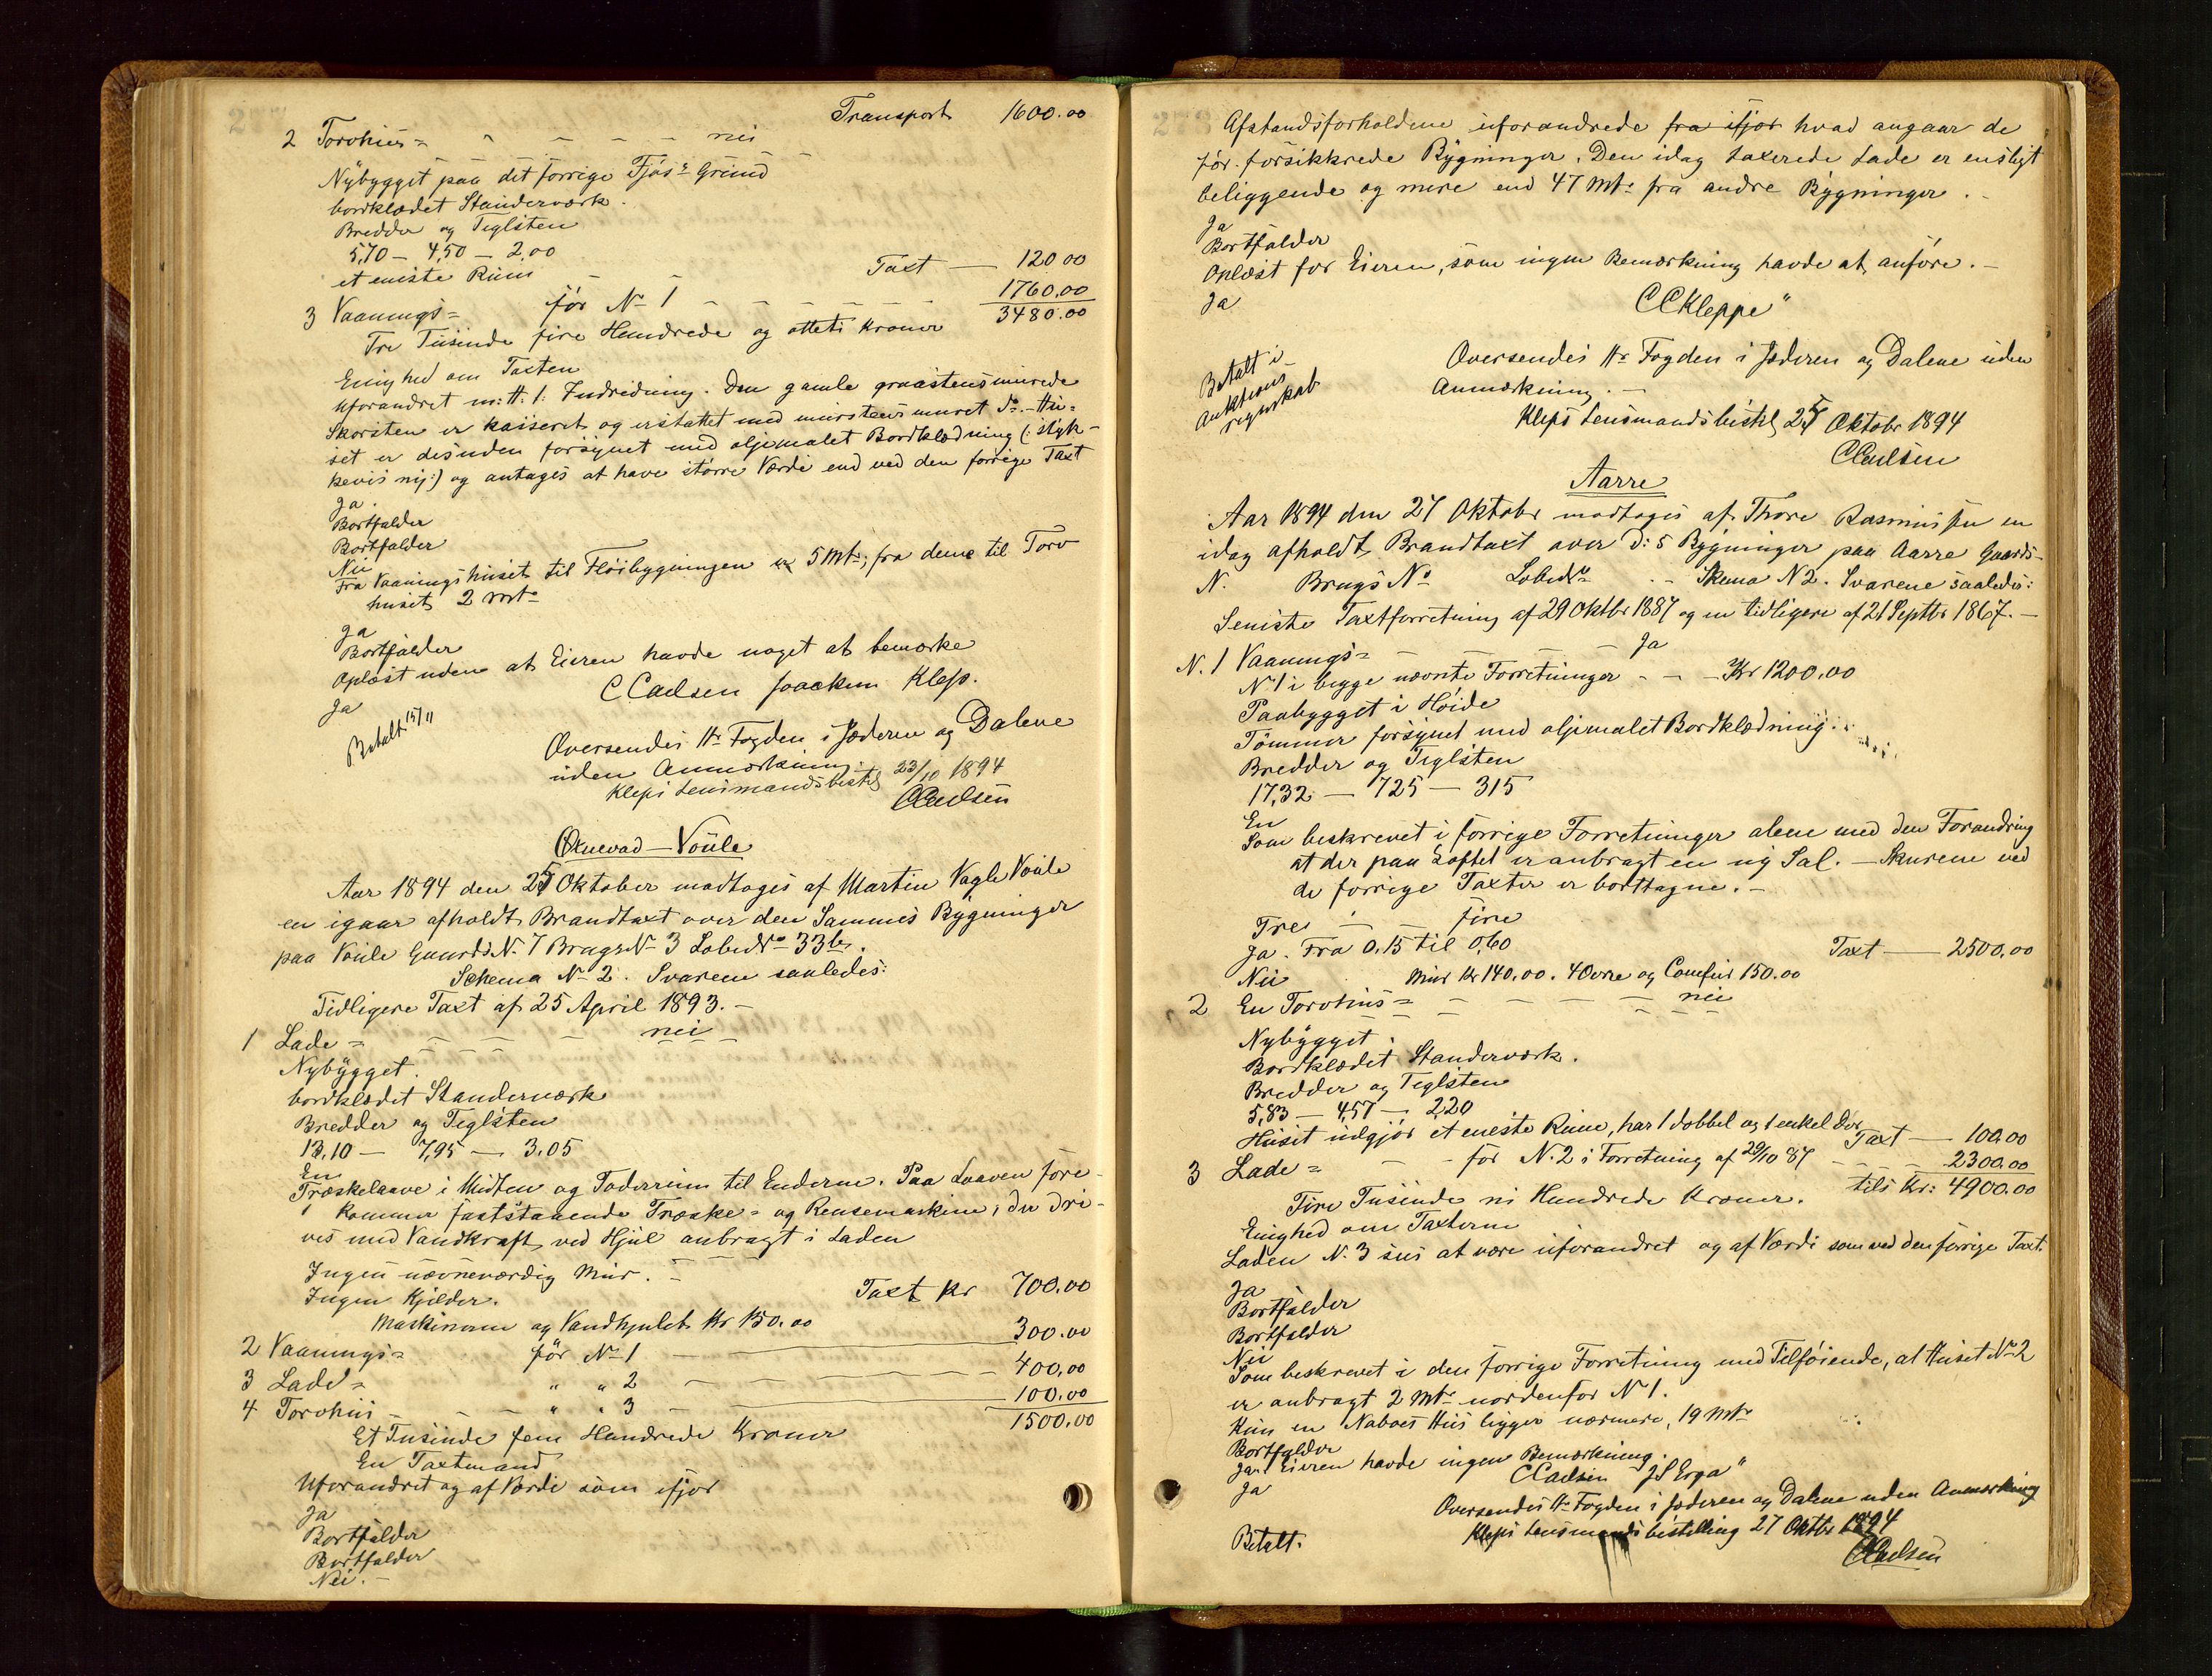 Transport 1600.00
2 Torvhus = " – – – – nei
Nybygget paa det forrige Fjøs: Grund
bordklædet Standerværk.
Bredder og Teglsten
5,70 – 4,50 – 2,00
et eneste Rum – – Taxt — 120 00
3 Vaanings = før No 1 – – – – – – 1760,00
3480.00
Tre Tusinde fire Hundrede og otteti Kroner
Enighed om Taxten
Uforandret m: H: t: Indredning. Den gamle graastensmurede
Skorsten er kasseret og erstattet med murstensmuret Do. – Hu=
set er desuden forsynet med oljemalet Bordklædning (: styk-
kevis ny:) og antages at have større Værdi end ved den forrige Taxt
Ja.
Bortfalder
Bortfalder
Nei
Fra Vaaningshuset til Fløibygningen er 5 Mtr; fra denne til Torv
huset 2 mtr
Ja
Bortfalder
Oplæst uden at Eieren havde noget at bemærke
Ja C Carlsen Joackim Klep.
Betalt 15/11
Oversendes Hr Fogden i Jæderen og Dalene
uden Anmærkning.
Kleps Lensmandsbestil 23/10 1894
CCarlsen
Øxnevad – Voule
Aar 1894 den 25 Oktober modtages af Martin Vagle Voule
en igaar afholdt Brandtaxt over den Sammes Bygninger
paa Voule Gaards N. 7 Brugs No 3 Løbe No 33b.
Schema No 2. Svarene saaledes:
Tidligere Taxt af 25 April 1893. –
1 Lade = – – – – nei – –
Nybygget.
bordklædet Standerværk
Bredder og Teglsten
13,10 — 7,95 — 3.05
En
Træskelaave i Midten og Foderrum til Enderne. Paa Laaven fore-
kommer faststaaende Træske = og Rensemaskine, der dri-
ves med Vandkraft ved Hjul anbragt i Laden
Ingen nævneværdig Mur. –
Ingen Kjelder. Taxt Kr 700.00
Maskinerne og Vandhjulet Kr 150.00
2 Vaanings = før No 1 — 300.00
3 Lade = " " 2 – – – – – 400,00
4 Torvhus – – – " " 3 – 100.00
1500.00
Et Tusinde fem Hundrede Kroner
En Taxtmand
Uforandret og af Værdi som ifjor
Ja
Bortfalder
Bortfalder
Nei. –
Afstandsforholdene uforandrede fra ifjor hvad angaar de
før forsikkrede Bygninger. Den idag taxerede Lade er ensligt
beliggende og mere end 47 Mtr fra andre Bygninger.
Ja
Bortfalder
Oplæst for Eieren, som ingen Bemærkning havde at anføre. –
Ja CCKleppe"
Betalt i
Auktions
regnskab
Oversendes Hr Fogden i Jæderen og Dalene uden
Anmærkning. –
Kleps Lensmandsbestil 25 Oktobr 1894
CCarlsen
Aarre
Aar 1894 den 27 Oktobr modtages af Thore Rasmussen en
idag afholdt Brandtaxt over D: 5 Bygninger paa Aarre Gaards-
N. Brugs No Løbe No – – Skema N 2. Svarene saaledes:
Seniste Taxtforretning af 29 Oktbr 1887 og en tidligere af 21 Septbr 1867. –
N. 1 Vaanings = – – – – Ja
No 1 i begge nævnte Forretninger – – – Kr 1200.00
Paabygget i Høide
Tømmer forsynet med oljemalet Bordklædning.
Bredder og Teglsten
17,32 — 725 — 315
En
Som beskrevet i forrige Forretninger alene med den Forandring
at der paa Loftet er anbragt en ny Sal. – Skurene ved
de forrige Taxter er borttagne. –
Tre – – fire
Ja. Fra 0,15 til 0,60 Taxt — 2500.00
Nei Mur Kr 140.00. 4 Ovne og Comfur 150.00
2 En Torvhus = – – – – – nei
Nybygget.
Bordklædet Standerværk.
Bredder og Teglsten
5,83 — 4,57 — 2,20
Huset udgjør et eneste Rum, har 1 dobbel og 1 enkel Dør Taxt — 100.00
3 Lade = – – for N. 2 i Forretning af 29/10 87 – – – 2300.00
Fire Tusinde ni Hundrede Kroner. tils Kr: 4900.00
Enighed om Taxterne
Laden N. 3 sees at være uforandret og af Værdi som ved den forrige Taxt.
Ja
Bortfalder
Bortfalder
Nei
Som beskrevet i den forrige Forretning med Tilføiende, at Huset No 2
er anbragt 2 Mtr nordenfor N 1.
Kun en Naboes Hus ligger nærmere, 19 Mtr
Bortfalder
Ja. Eieren havde ingen Bemærkning.
Ja CCarlsen J S Erga"
Oversendes Hr Fogden i Jæderen og Dalene uden Anmærkning
Betalt. Kleps Lensmandsbestilling 27 Oktbr 1894
CCarlsen